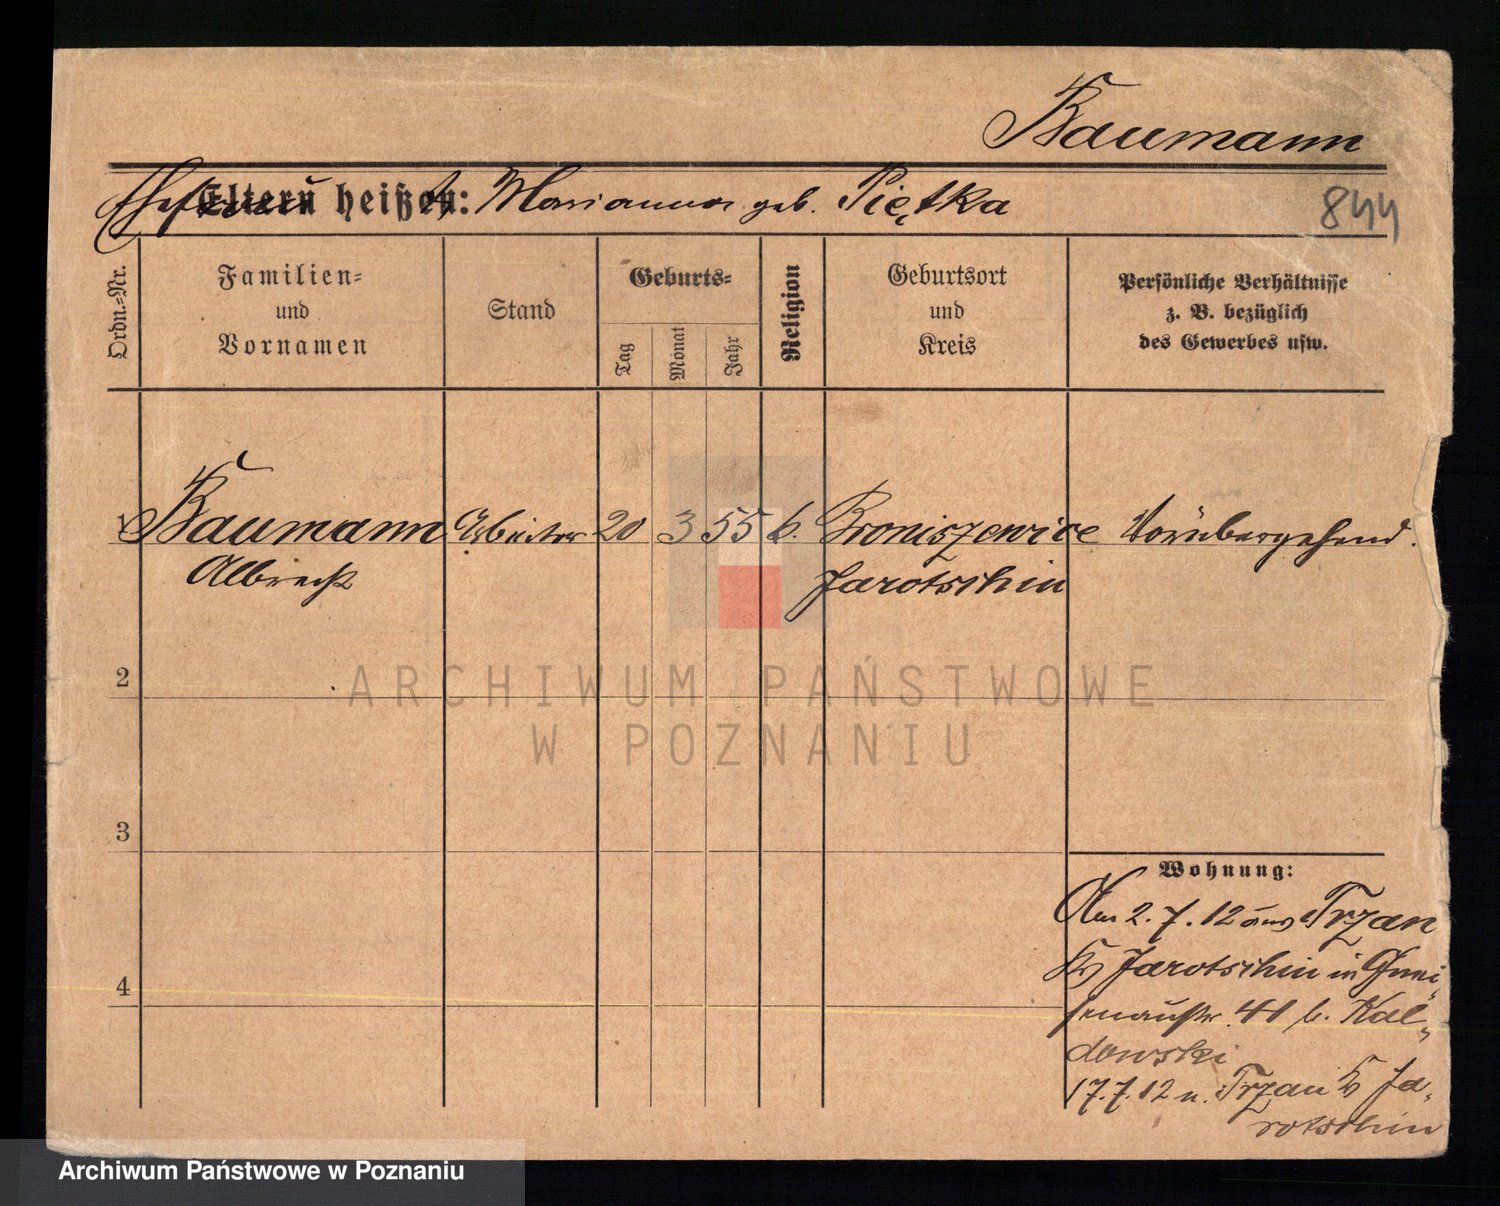 Baumann
Ehefrau Eltern heißen: Marianna geb. Piętka
844
Ordn.=Nr.
Familien=
und
Vornamen
Stand
Geburts=
Tag
Monat
Jahr
Religion
Geburtsort
und
Kreis
Persönliche Verhältnisse
z. B. bezüglich
des Gewerbes usw.
1 Baumann Arbeiter 20 3 55 k. Broniszewice Vorübergehend.
Albrecht Jarotschin
2
ARCHIWUM PAŃSTWOWE
W POZNANIU
3
Wohnung:
Am 2.7.12 aus Trzan
Kr Jarotschin in Gnei-
senaustr. 41 b. Kal-
dowski
4
17.7.12 n. Trzan Kr Ja-
rotschin
Archiwum Państwowe w Poznaniu